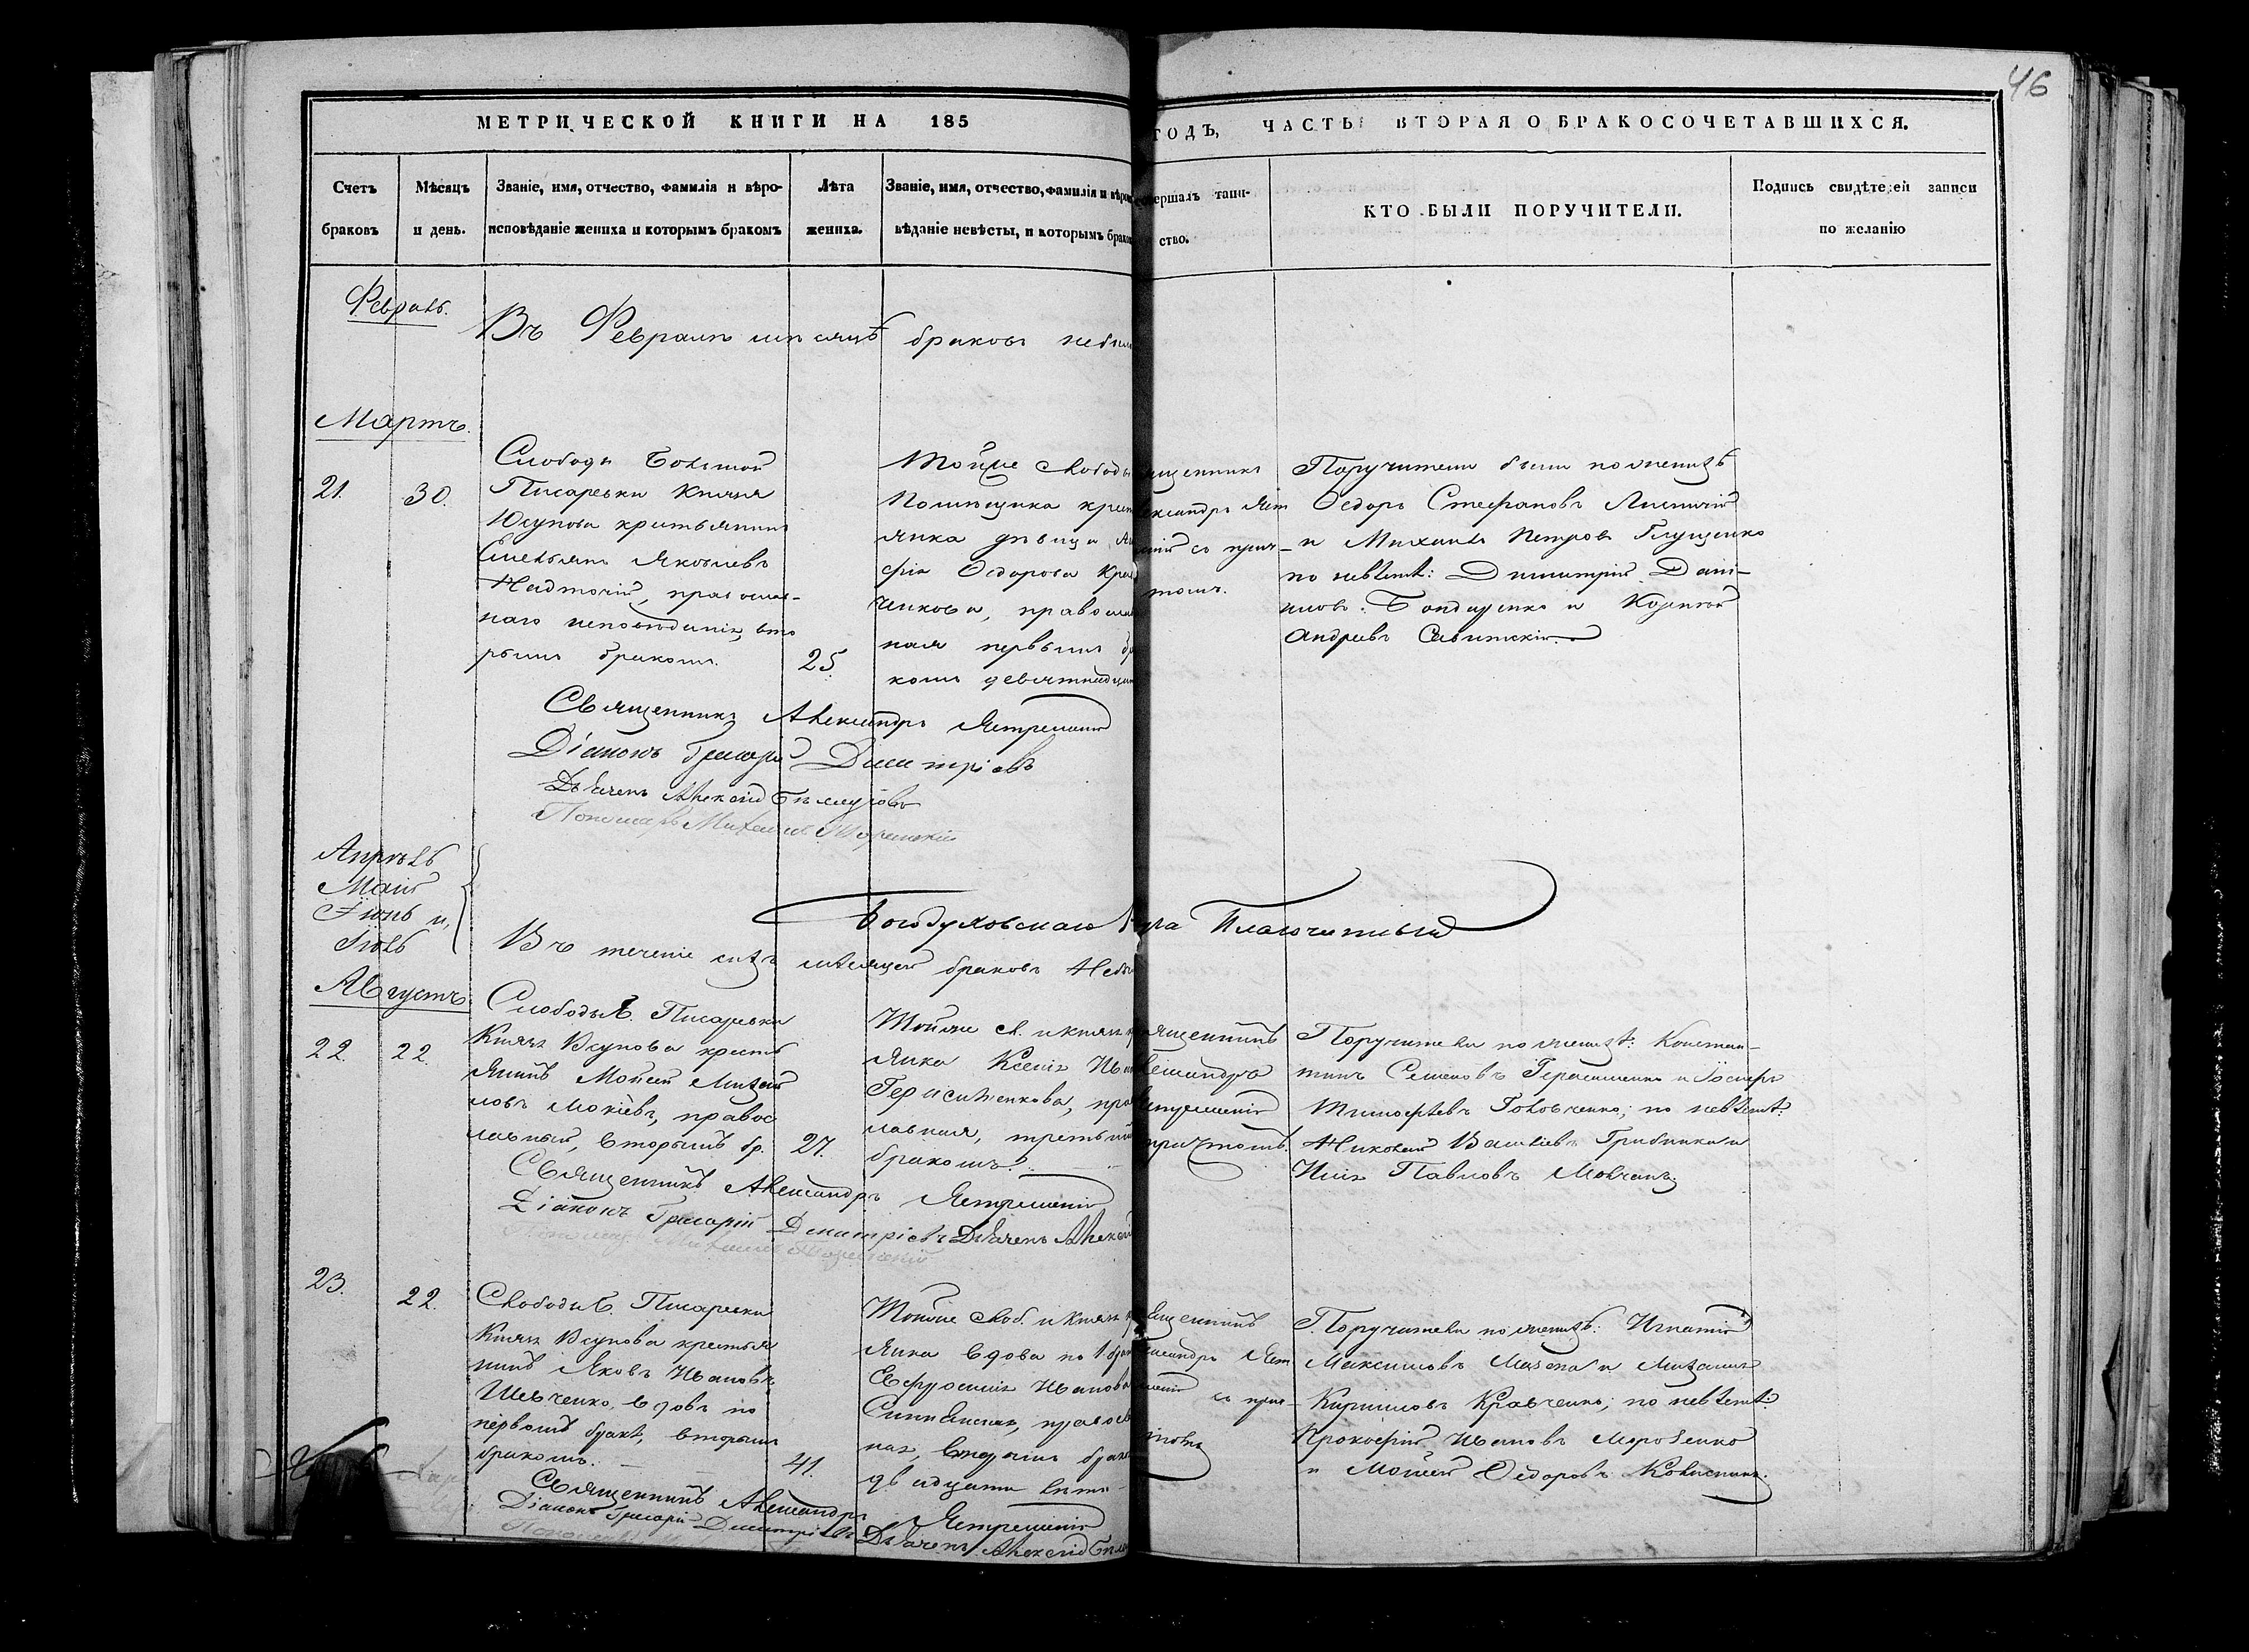 46
МЕТРИЧЕСКОЙ КНИГИ НА 185
ГОДЪ, ЧАСТЬ ВТОРАЯ О БРАКОСОЧЕТАВШИХСЯ.
Счетъ
браковъ
Мѣсяцъ
и день.
Званіе, имя, отчество, фамилія и вѣро-
исповѣданіе жениха и которымъ бракомъ
Лѣта
жениха.
Званіе, имя, отчество, фамилія и вѣро
вѣданіе невѣсты, и которымъ брако
овершалъ таин-
ство.
КТО БЫЛИ ПОРУЧИТЕЛИ.
Подпись свидѣтелей записи
по желанію
Февраль.
Въ Февралѣ мѣсяцѣ браковъ небыло
Мартъ.
21.
30.
Слободы Большой
Писаревки Князя
Юсупова крестьянинъ
Емельянъ Яковлевъ
Надточій, православ-
наго исповѣданія, вто
рымъ бракомъ.
25.
Тойже слободы
Помѣщика крест
янка дѣвица
фія Федорова Крав
ченкова, православ
ная первымъ бр
комъ девятнадцат
ященникъ
ександръ Яст
скій съ прич-
томъ.
Поручители были по женихѣ
Федоръ Стефановъ
и Михаилъ Петровъ Глущенко
по невѣстѣ: Димитрій Дани-
ловъ Бондаренко и
Андреевъ Савитскій.
Священникъ Александръ Ястремскій
Діаконъ Григорій Димитріевъ
Дьячекъ Алексій
Пономарь Михаилъ
Апрѣль
Май
Іюнь и
Іюль
Богодуховскаго
Въ теченіе сихъ мѣсяцей браковъ небы
Августъ.
22.
22.
Слободы Б. Писаревки
Князя Юсупова кресть
янинъ Мойсей Михай
ловъ Мокіевъ, правос
лавный, вторымъ бр.
27.
Тойже с. и князя к
янка Ксенія Ив
Герасименкова, пра
лавная, третьимъ
бракомъ.
ященникъ
лександръ
стремскій
причтомъ.
Поручители по женихѣ: Констан-
тинъ Семеновъ Герасименко и Іосифъ
Тимофѣевъ Головченко; по невѣстѣ:
Николай Васильевъ и
Илія Павловъ Мовчанъ.
Священникъ Александръ Ястремскій
Діаконъ Григорій Димитріевъ Дьячекъ Алексій
Пономарь Михаилъ
23.
22.
Слободы Б. Писаревки
Князя Юсупова крестья
нинъ Яковъ Ивановъ
Шевченко, вдовъ по
первомъ бракѣ, вторымъ
бракомъ.
41.
Тойже слоб. и князя к
янка вдова по 1. брак
Евфросинія Иванова
правосл
ная, вторымъ брак
двадцати пяти
ященникъ
лександръ Яст
скій съ прич-
томъ
Поручители по женихѣ: Игнатій
Максимовъ Мазепа и Михаилъ
Кирилловъ Кравченко; по невѣстѣ:
Прокофій Ивановъ
и Мойсей Федоровъ
Священникъ Александръ Ястремскій
Діаконъ Григорій Димитріевъ Дьячекъ Алексій